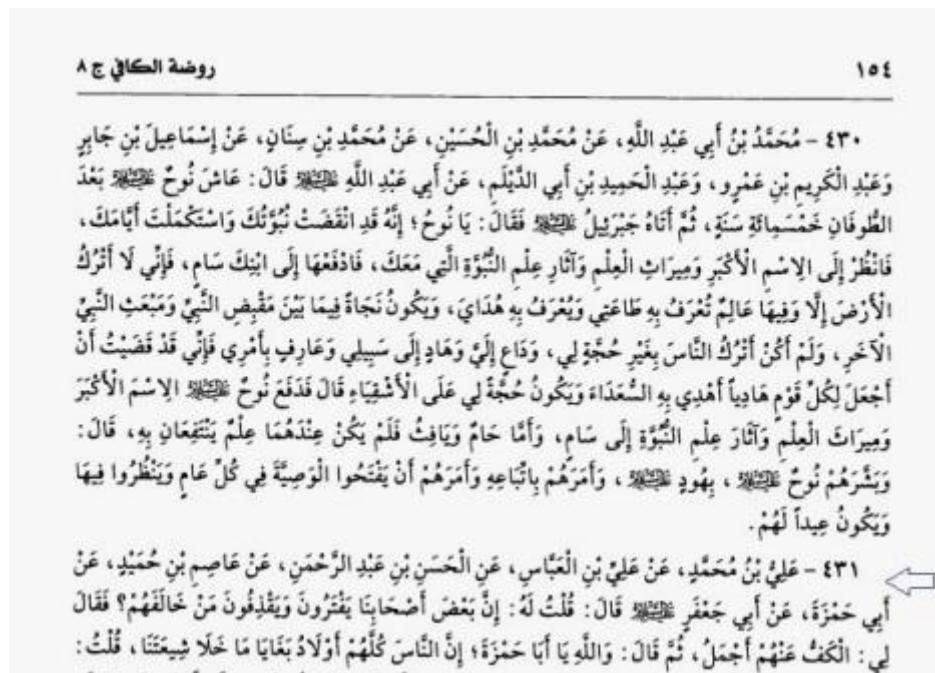 ١٥٤ روضة الكافي ج ٨
٤٣٠ - مُحَمَّدُ بْنُ أَبِي عَبْدِ اللَّهِ، عَنْ مُحَمَّدِ بْنِ الْحُسَيْنِ، عَنْ مُحَمَّدِ بْنِ سِنَانٍ، عَنْ إِسْمَاعِيلَ بْنِ جَابِرٍ
وَعَبْدِ الْكَرِيمِ بْنِ عَمْرٍو، وَعَبْدِ الْحَمِيدِ بْنِ أَبِي الدَّيْلَمِ، عَنْ أَبِي عَبْدِ اللَّهِ عَلَيْهِ السَّلَامُ قَالَ: عَاشَ نُوحٌ عَلَيْهِ السَّلَامُ بَعْدَ
الطُّوفَانِ خَمْسَمِائَةِ سَنَةٍ، ثُمَّ أَتَاهُ جَبْرَئِيلُ عَلَيْهِ السَّلَامُ فَقَالَ: يَا نُوحُ؛ إِنَّهُ قَدِ انْقَضَتْ نُبُوَّتُكَ وَاسْتَكْمَلْتَ أَيَّامَكَ،
فَانْظُرْ إِلَى الِاسْمِ الْأَكْبَرِ وَمِيرَاثِ الْعِلْمِ وَآثَارِ عِلْمِ النُّبُوَّةِ الَّتِي مَعَكَ، فَادْفَعْهَا إِلَى ابْنِكَ سَامٍ، فَإِنِّي لَا أَتْرُكُ
الْأَرْضَ إِلَّا وَفِيهَا عَالِمٌ تُعْرَفُ بِهِ طَاعَتِي وَيُعْرَفُ بِهِ هُدَايَ، وَيَكُونُ نَجَاةً فِيمَا بَيْنَ مَقْبِضِ النَّبِيِّ وَمَبْعَثِ النَّبِيِّ
الْآخَرِ، وَلَمْ أَكُنْ أَتْرُكُ النَّاسَ بِغَيْرِ حُجَّةٍ لِي، وَدَاعٍ إِلَيَّ وَهَادٍ إِلَى سَبِيلِي وَعَارِفٍ بِأَمْرِي فَإِنِّي قَدْ قَضَيْتُ أَنْ
أَجْعَلَ لِكُلِّ قَوْمٍ هَادِياً أَهْدِي بِهِ السُّعَدَاءَ وَيَكُونُ حُجَّةً لِي عَلَى الْأَشْقِيَاءِ قَالَ فَدَفَعَ نُوحٌ عَلَيْهِ السَّلَامُ الِاسْمَ الْأَكْبَرَ
وَمِيرَاثَ الْعِلْمِ وَآثَارَ عِلْمِ النُّبُوَّةِ إِلَى سَامٍ، وَأَمَّا حَامٌ وَيَافِثُ فَلَمْ يَكُنْ عِنْدَهُمَا عِلْمٌ يَنْتَفِعَانِ بِهِ، قَالَ:
وَبَشَّرَهُمْ نُوحٌ عَلَيْهِ السَّلَامُ، بِهُودٍ عَلَيْهِ السَّلَامُ، وَأَمَرَهُمْ بِاتِّبَاعِهِ وَأَمَرَهُمْ أَنْ يَفْتَحُوا الْوَصِيَّةَ فِي كُلِّ عَامٍ وَيَنْظُرُوا فِيهَا
وَيَكُونُ عِيداً لَهُمْ.
٤٣١ - عَلِيُّ بْنُ مُحَمَّدٍ، عَنْ عَلِيِّ بْنِ الْعَبَّاسِ، عَنِ الْحَسَنِ بْنِ عَبْدِ الرَّحْمَنِ، عَنْ عَاصِمِ بْنِ حُمَيْدٍ، عَنْ
أَبِي حَمْزَةَ، عَنْ أَبِي جَعْفَرٍ عَلَيْهِ السَّلَامُ قَالَ: قُلْتُ لَهُ: إِنَّ بَعْضَ أَصْحَابِنَا يَفْتَرُونَ وَيَقْذِفُونَ مَنْ خَالَفَهُمْ؟ فَقَالَ
لِي: الْكَفُّ عَنْهُمْ أَجْمَلُ، ثُمَّ قَالَ: وَاللَّهِ يَا أَبَا حَمْزَةَ؛ إِنَّ النَّاسَ كُلَّهُمْ أَوْلَادُ بَغَايَا مَا خَلَا شِيعَتَنَا، قُلْتُ: